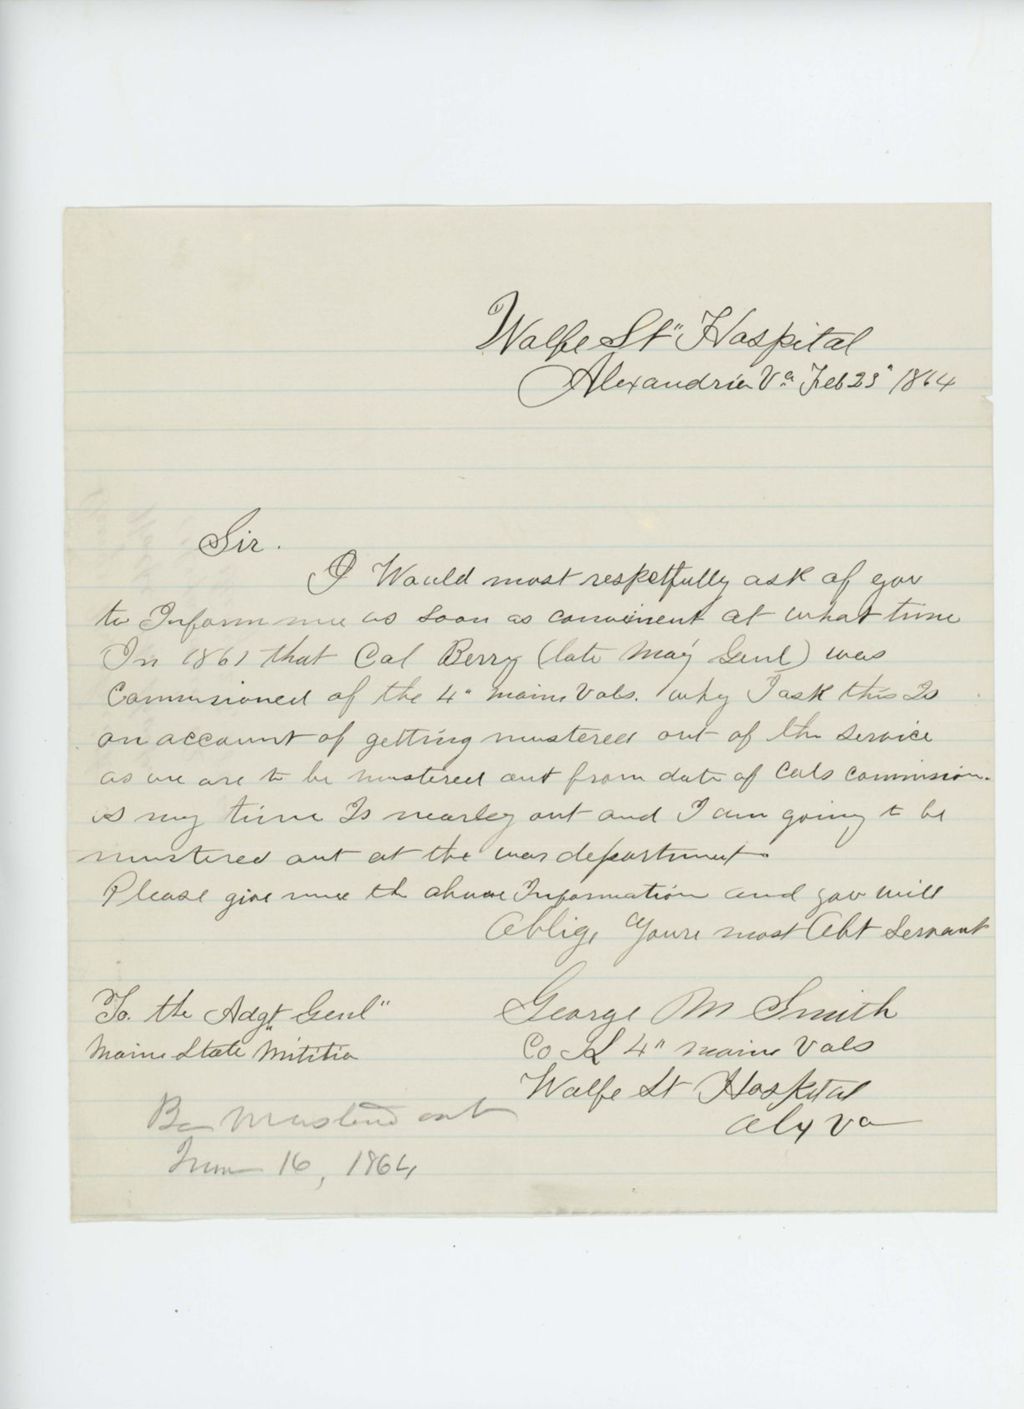 Wolfe St" Hospital
Alexandria Va Feb 23" 1864
Sir.
I Would most respetfully ask of you
to Inform me as soon as conveinent at what time
In 1861 that Col Berry (late Maj Genl) was
Commisioned of the 4" Maine Vols. why I ask this Is
on account of getting mustered out of the service
as we are to be mustered out from date of Cols commision.
as my time Is nearley out and I am going to be
mustered out at the war department.
Please give me the above Information and you will
Oblige Youre most Obt Servant
To. the Adgt Genl"
Maine State Militia
George M Smith
Co 4" Maine Vols
Wolfe St Hospital
Alx Va
Be Mustered out
June 16, 1864